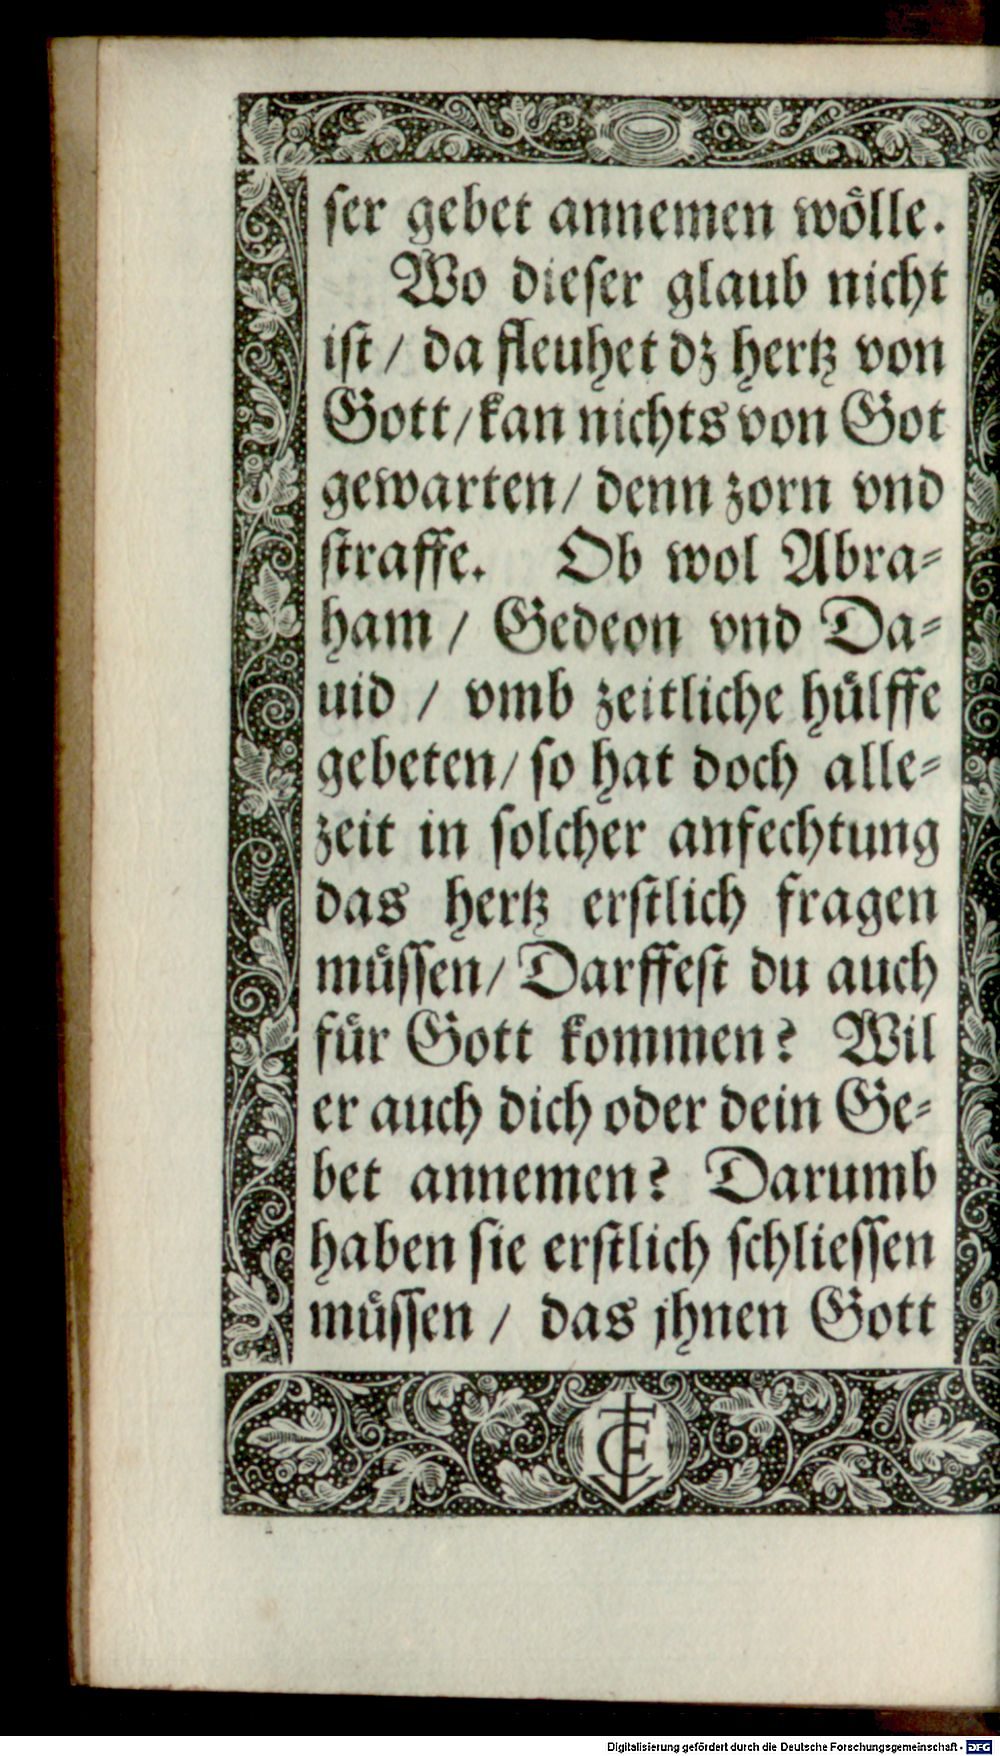 ſer gebet annemen woͤlle.
Wo dieſer glaub nicht
iſt / da fleuhet dz hertz von
Gott / kan nichts von Got
gewarten / denn zorn vnd
ſtraffe. Ob wol Abra⸗
ham / Gedeon vnd Da⸗
uid / vmb zeitliche huͤlffe
gebeten / ſo hat doch alle⸗
zeit in ſolcher anfechtung
das hertz erſtlich fragen
muͤſſen / Darffeſt du auch
fuͤr Gott kommen? Wil
er auch dich oder dein Ge⸗
bet annemen? Darumb
haben ſie erſtlich ſchlieſſen
muͤſſen / das jhnen Gott
Digitalisierung gefördert durch die Deutsche Forschungsgemeinschaft - DFG